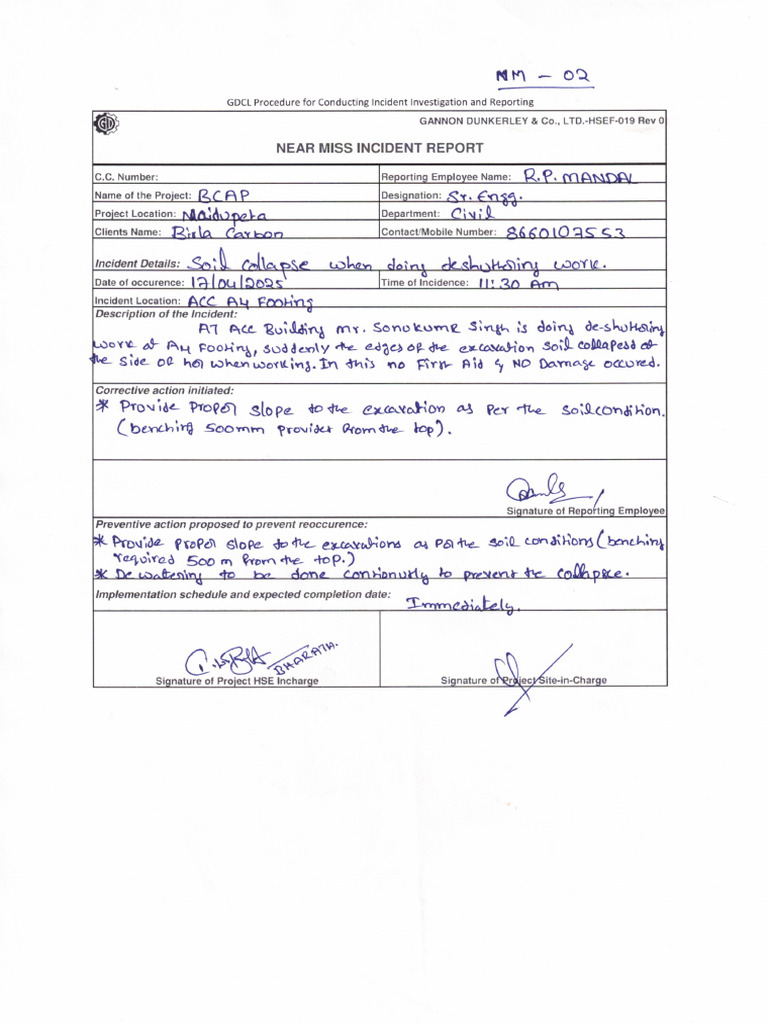 NM - 02
GDCL Procedure for Conducting Incident Investigation and Reporting
GD
GANNON DUNKERLEY & Co., LTD.-HSEF-019 Rev 0
NEAR MISS INCIDENT REPORT
C.C. Number:
Reporting Employee Name: R.P. MANDAL
Name of the Project: BCAP
Designation: Sr. Engg.
Project Location: Naidupeta
Department: Civil
Clients Name: Birla Carbon
Contact/Mobile Number: 8660107553
Incident Details: Soil collapse when doing deshuttering work.
Date of occurence: 17/04/2025
Time of Incidence: 11:30 Am
Incident Location: ACC A4 Footing
Description of the Incident:
AT Acc Building mr. Sonukumr Singh is doing de-shuttering
work at A4 Footing, suddenly the edges of the excavation soil collapesd at
the side of when working. In this no First Aid & NO Damage occured.
Corrective action initiated:
* Provide Proper slope to the excavation as Per the soil condition.
(benching 500mm provided from the top).
Signature of Reporting Employee
Preventive action proposed to prevent reoccurence:
* Provide proper slope to the excavations as Per the soil conditions (benching
required 500 m from the top.)
* De watering to be done to prevent the collapse.
Implementation schedule and expected completion date: Immediately.
BHARATH.
Signature of Project HSE Incharge
Signature of Project Site-in-Charge